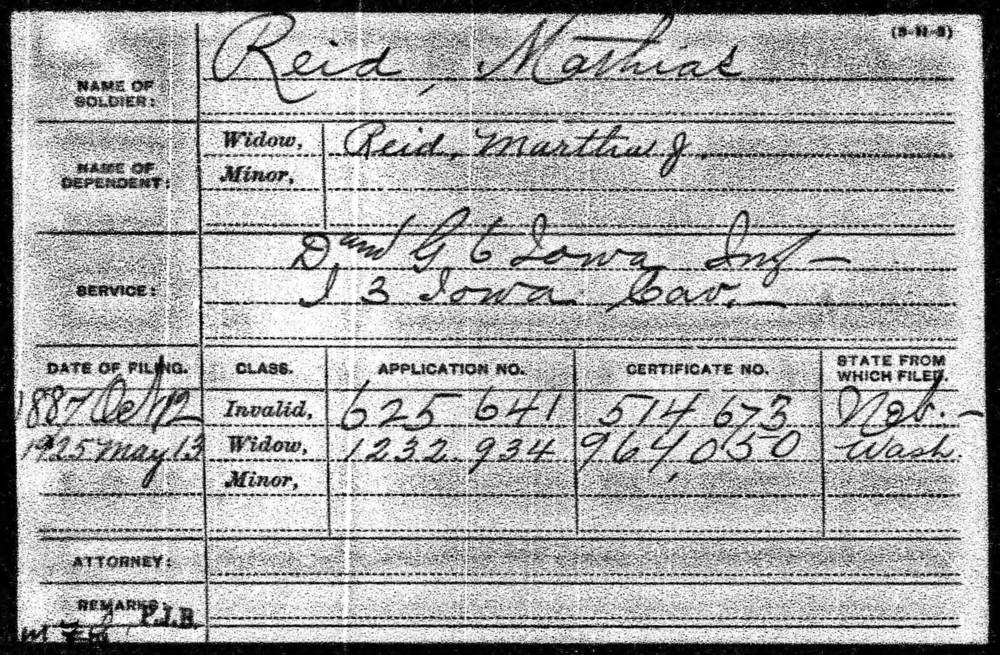 (3-11-3)
NAME OF SOLDIER: Reid, Mathias
NAME OF DEPENDENT: Widow, Reid, Martha J.
Minor,
SERVICE: D and G 6 Iowa Inf-
I 3 Iowa Cav.-
DATE OF FILING. CLASS. APPLICATION NO. CERTIFICATE NO. STATE FROM WHICH FILED.
1887 Oct 12 Invalid, 625 641 514 673 Neb.-
1925 May 13 Widow, 1232.934 964,050 Wash.
Minor,
ATTORNEY:
REMARKS: P.J.B.